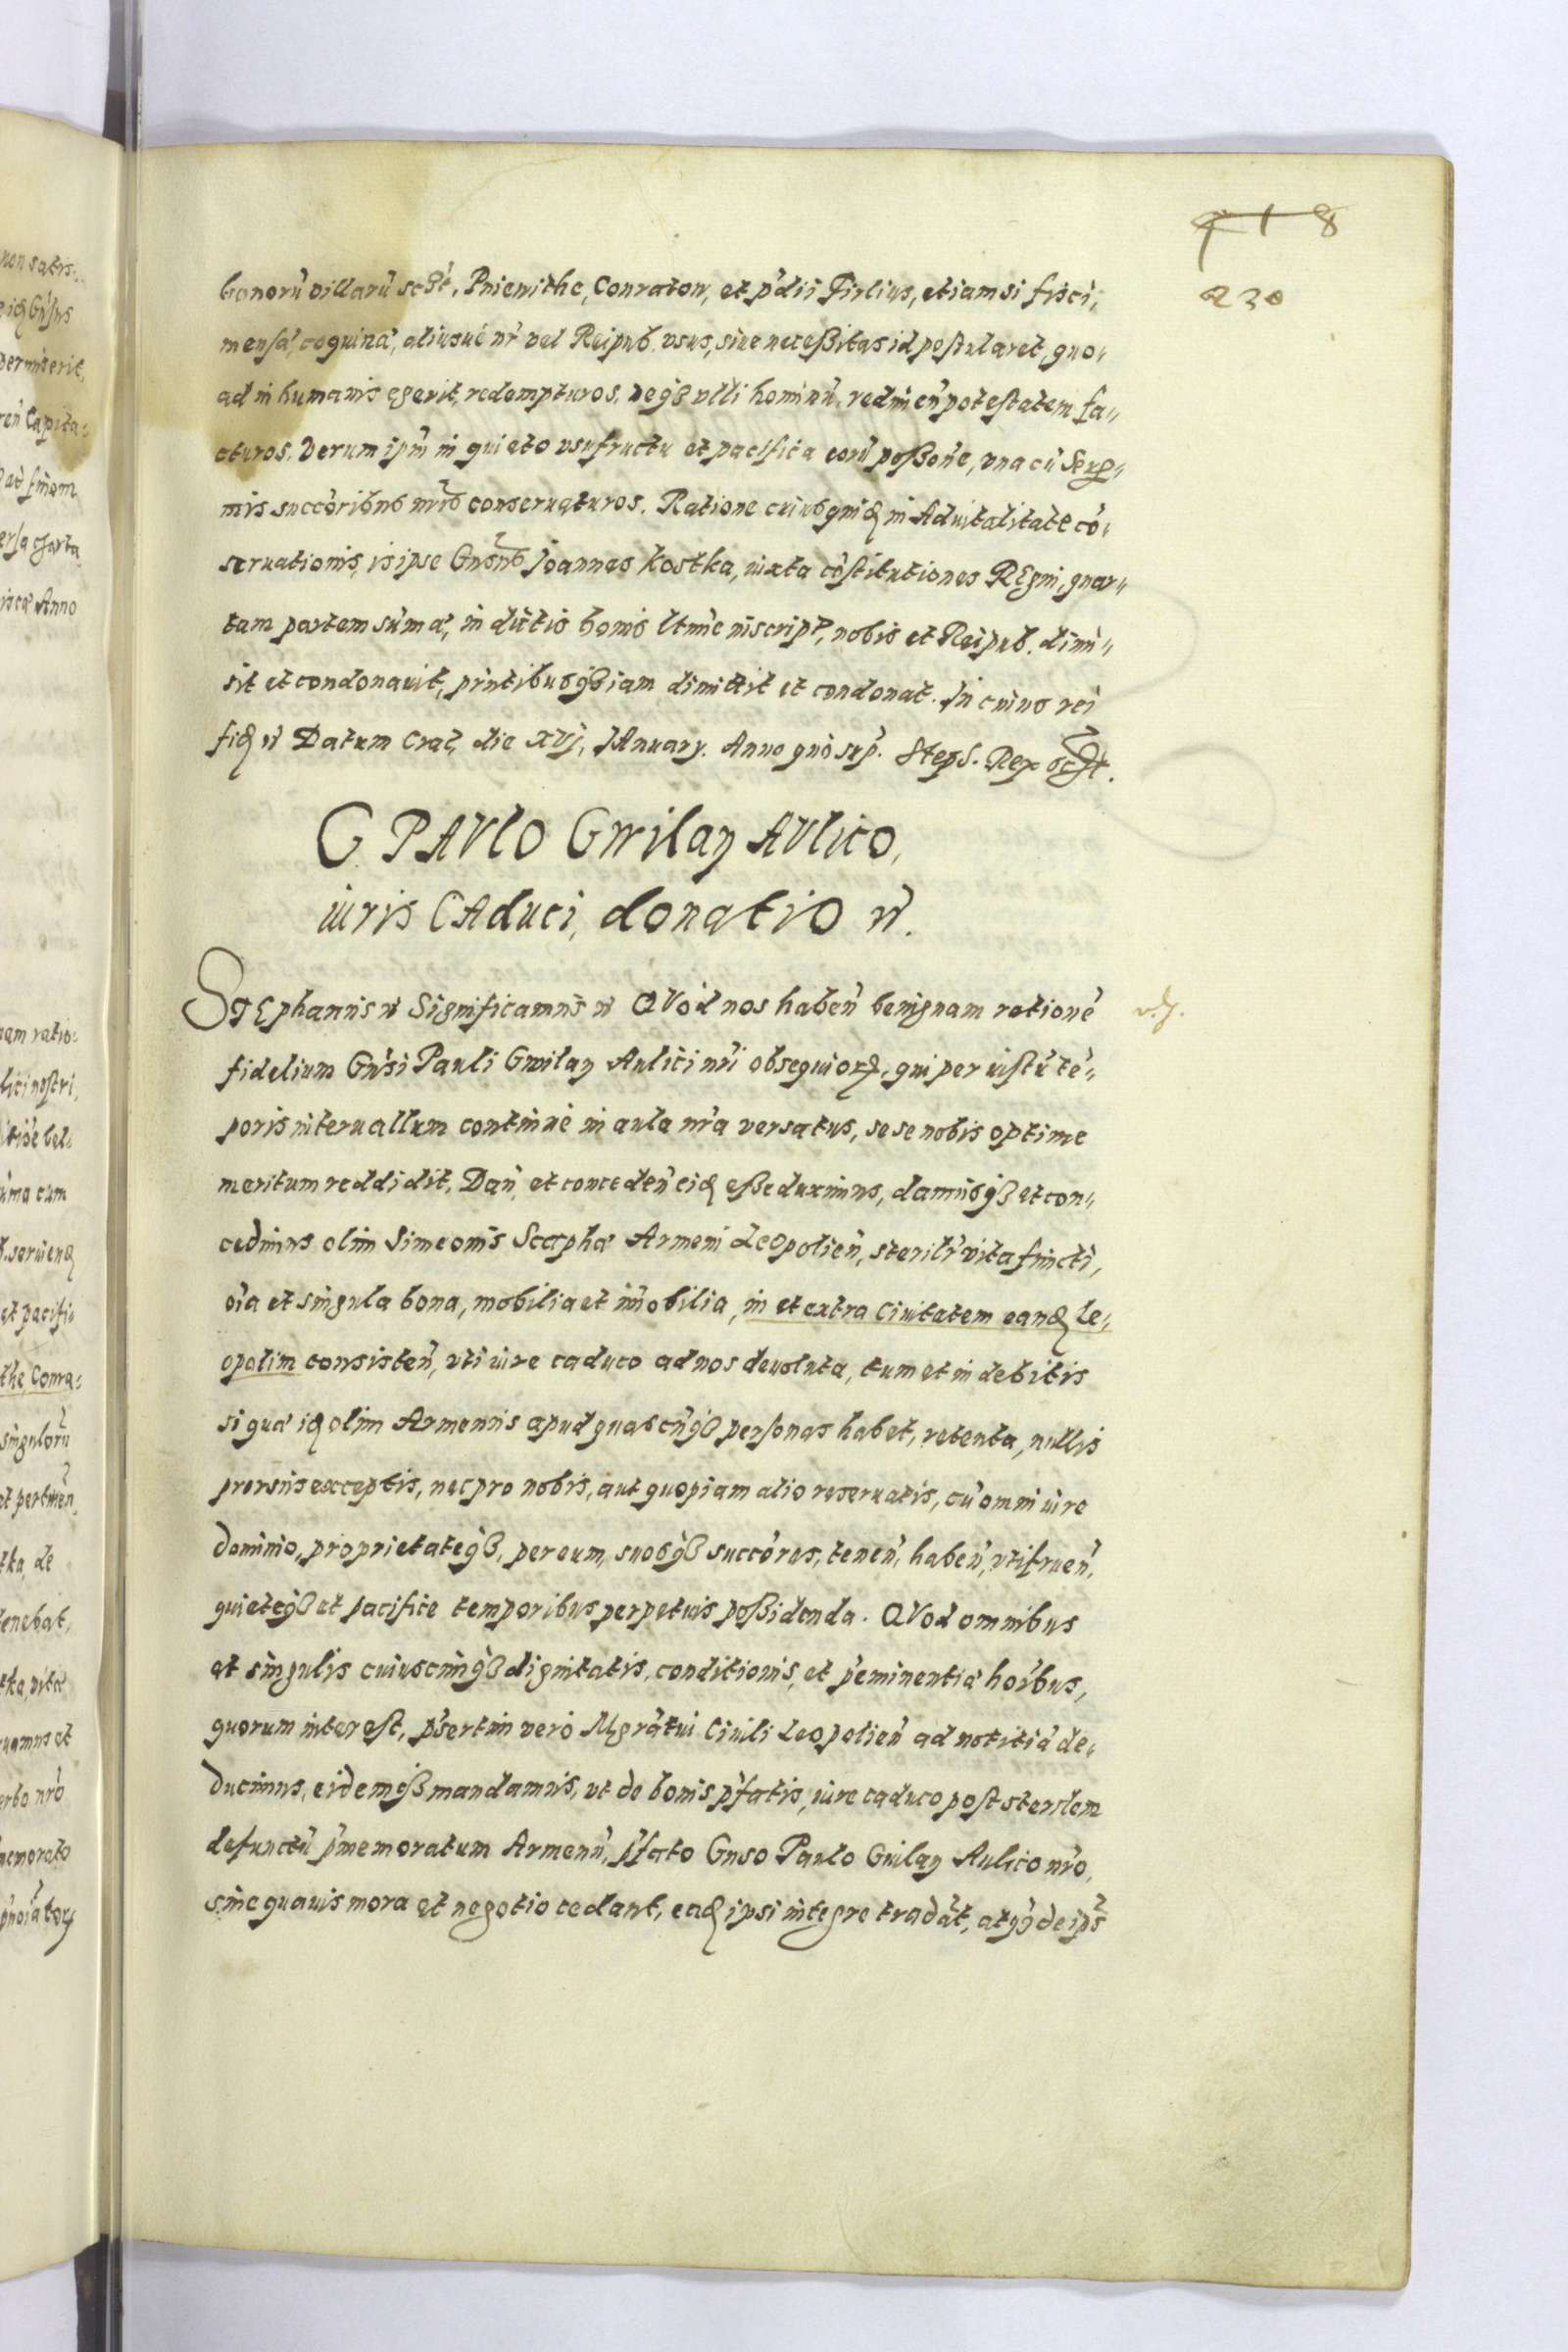 418
220
bonorũ villarũ scꝫt, Pniewithe, Conratow, et p̃dii Firlius, etiamsi fisci,
mensæ, coquinæ, aliusuè nr̃i vel Reipub. vsus, siue necessitas id postularet, quo⸗
ad in humanis egerit, redempturos, neqꝫ vlli hominũ, redimeñ potestatem fa⸗
cturos. Verum ipm̃ in quieto vsufructu et pacifica eorũ possoñe, vna cũ Serr⸗
mis succõribus nr̃is conseruaturos. Ratione cuius quidẽ in Aduitalitate cõ⸗
seruationis, is ipse Gnsus Joannes Kostka, iuxta cõstitutiones REgni, quar⸗
tam partem sũmæ, in dictis bonis ltim̃e inscript, nobis et Reipub. dimi⸗
sit et condonauit, pñtibusqꝫ iam dimittit et condonat. In cuius rei
fidẽ &c Datum Crac. die xvj, JAnuary. Anno quò sup̃. Steph. Rex sspt.
G. PAVlO Gwilay AVlico,
iuris CAduci, donatio &c.
STEphanus &c Significamus &c QVod nos habeñ benignam rationẽ
v.J.
fidelium Gñsi Pauli Gwilay Aulici nr̃i obsequiorꝫ, qui per iustũ tẽ⸗
poris interuallum continuè in aula nr̃a versatus, se se nobis optime
meritum reddidit, Dañ et concedeñ eiđ esse duximus, damusqꝫ et con⸗
cedimus olim Simeonis Scaphæ Armeni Leopolieñ, sterilr̃ vita functi,
oĩa et singula bona, mobilia et im̃obilia, in et extra Ciuitatem eanđ Le⸗
opolim consisteñ, vti iure caduco ad nos deuoluta, tum et in debitis
si quæ iđ olim Armenus apud quascũqꝫ personas habet, retenta, nullis
prorsus exceptis, nec pro nobis, aut quopiam alio reseruatis, cũ omni iure
dominio, proprietateqꝫ, per eum, suosqꝫ succõres, teneñ, habeñ, vtifrueñ,
quieteqꝫ et pacifice temporibus perpetuis possidenda. QVod omnibus
et singulis cuiuscũqꝫ dignitatis, conditionis, et p̃eminentiæ hoĩbus,
quorum interest, p̃sertim verò Mgrãtui Ciuili Leopolieñ ad notitiã de⸗
ducimus, eidemqꝫ mandamus, vt de bonis p̃fatis, iure caduco post sterilem
defunctũ p̃memoratum Armenũ, p̃fato Gnso Paulo Gwilay Aulico nr̃o,
sine quauis mora et negotio cedant, eađ ipsi integre tradãt, atqꝫ de ip̃s